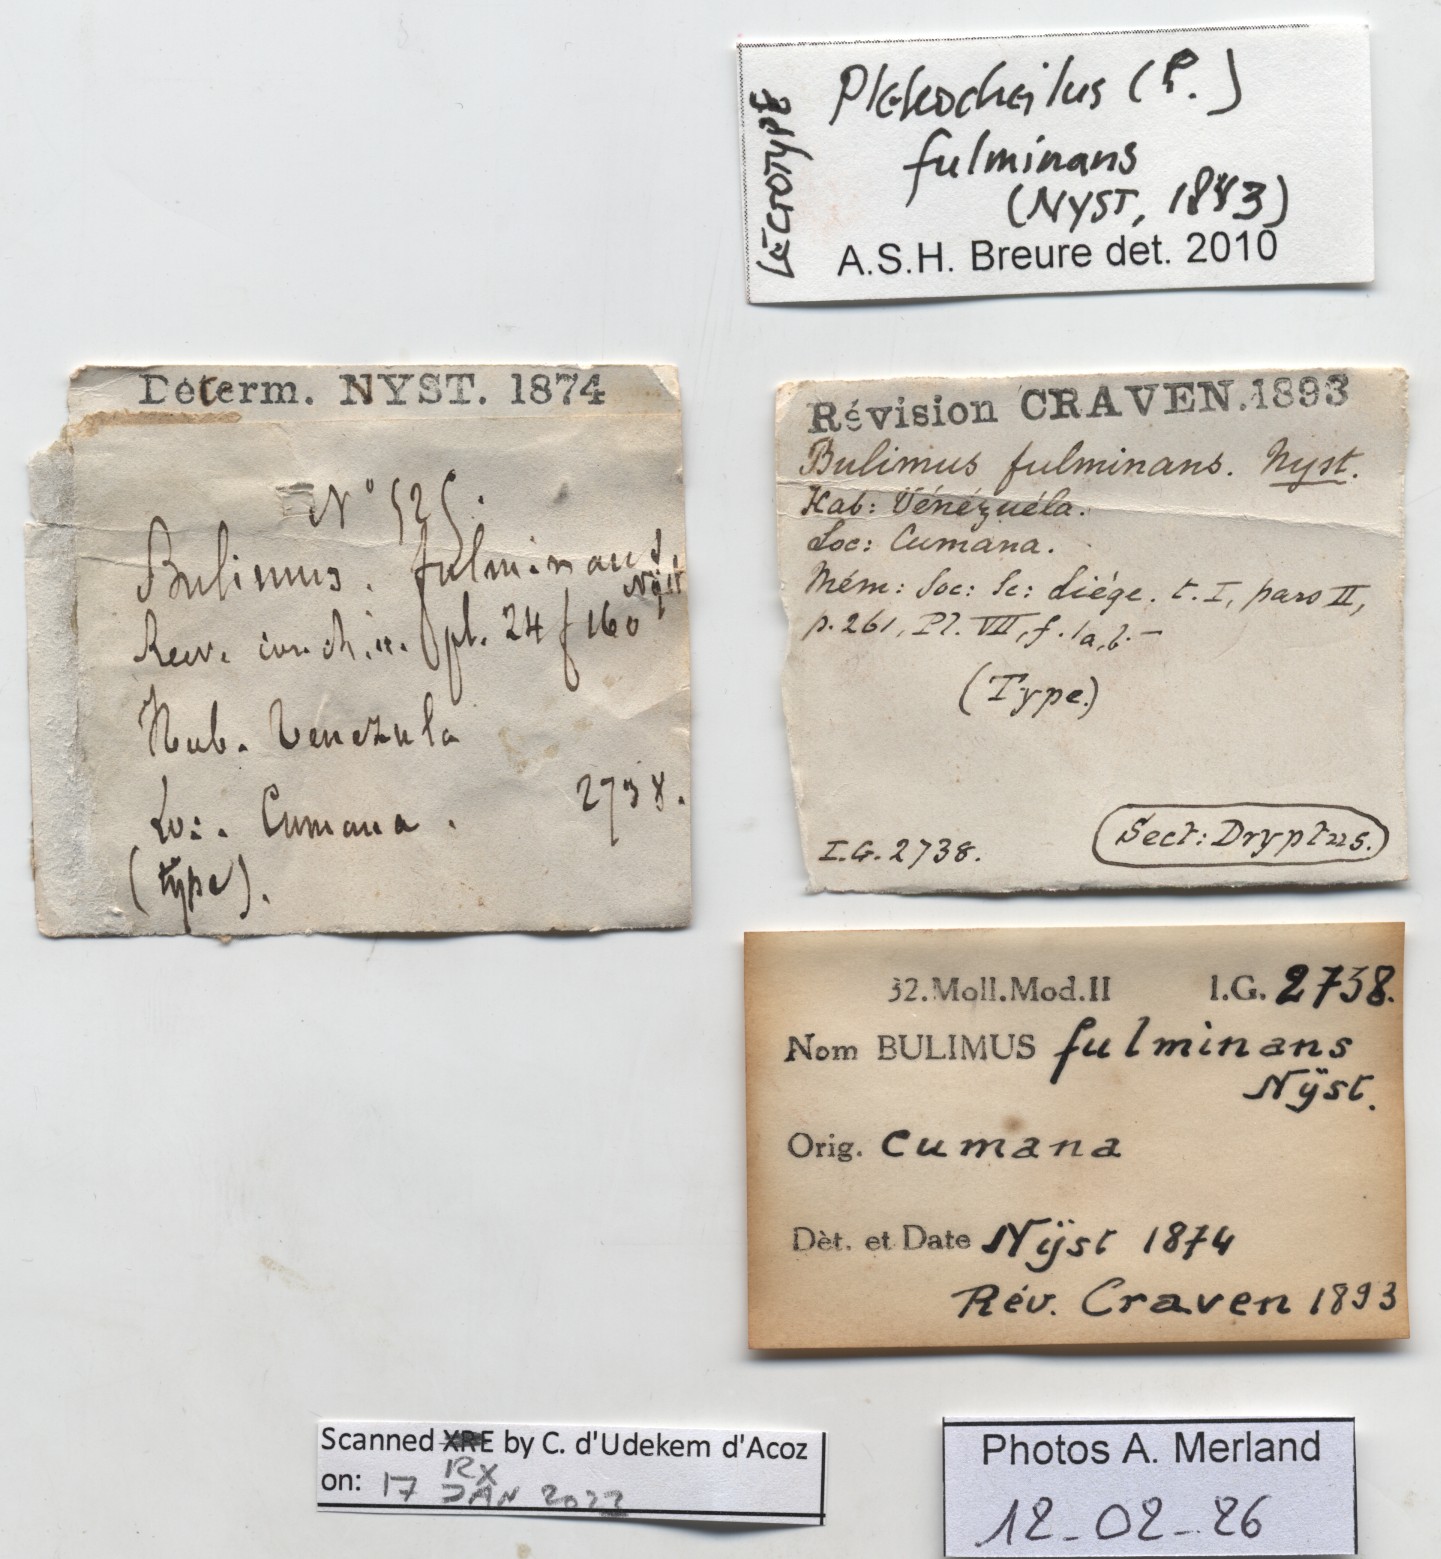 LECTOTYPE
Plekocheilus (P.)
fulminans
(NYST, 1843)
A.S.H. Breure det. 2010
Déterm. NYST. 1874
N° 525.
Bulimus. fulminans
Nyst
Reev. conch. ic. pl. 24 f 160
Hab. Venezula
Loc. Cumana.
2738.
(type).
Révision CRAVEN.1893
Bulimus fulminans. Nyst.
Hab: Vénézuéla.
Loc: Cumana.
Mém: Soc: Sc: Liége. t. I, pars II,
p. 261, Pl. VII, f. 1a, b. —
(Type.)
I.G. 2738.
Sect: Dryptus.
32.Moll.Mod.II I.G. 2738.
Nom BULIMUS fulminans
Nÿst.
Orig. Cumana
Dèt. et Date Nÿst 1874
Rév. Craven 1893
Scanned by C. d'Udekem d'Acoz
RX
on: 17 JAN 2022
Photos A. Merland
12-02-26